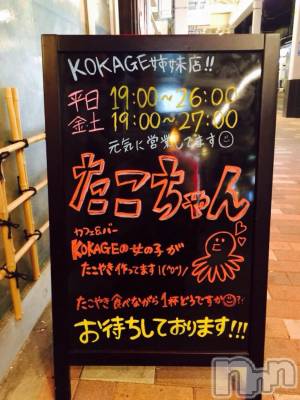 KOKAGE姉妹店!!
平日 19:00~26:00
金土 19:00~27:00
元気に営業してます
たこちゃん
カフェ&バー
KOKAGEの女の子が
たこやき作ってます!(^o^)ノ
たこやき食べながら1杯どうですか?!
お待ちしております!!!